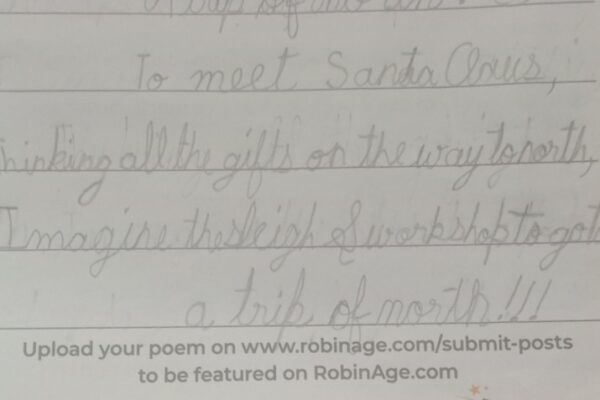 To meet Santa Claus,
hinking all the gifts on the way to north,
Imagine the sleigh & workshop to got
a trip of north!!!
Upload your poem on www.robinage.com/submit-posts
to be featured on RobinAge.com